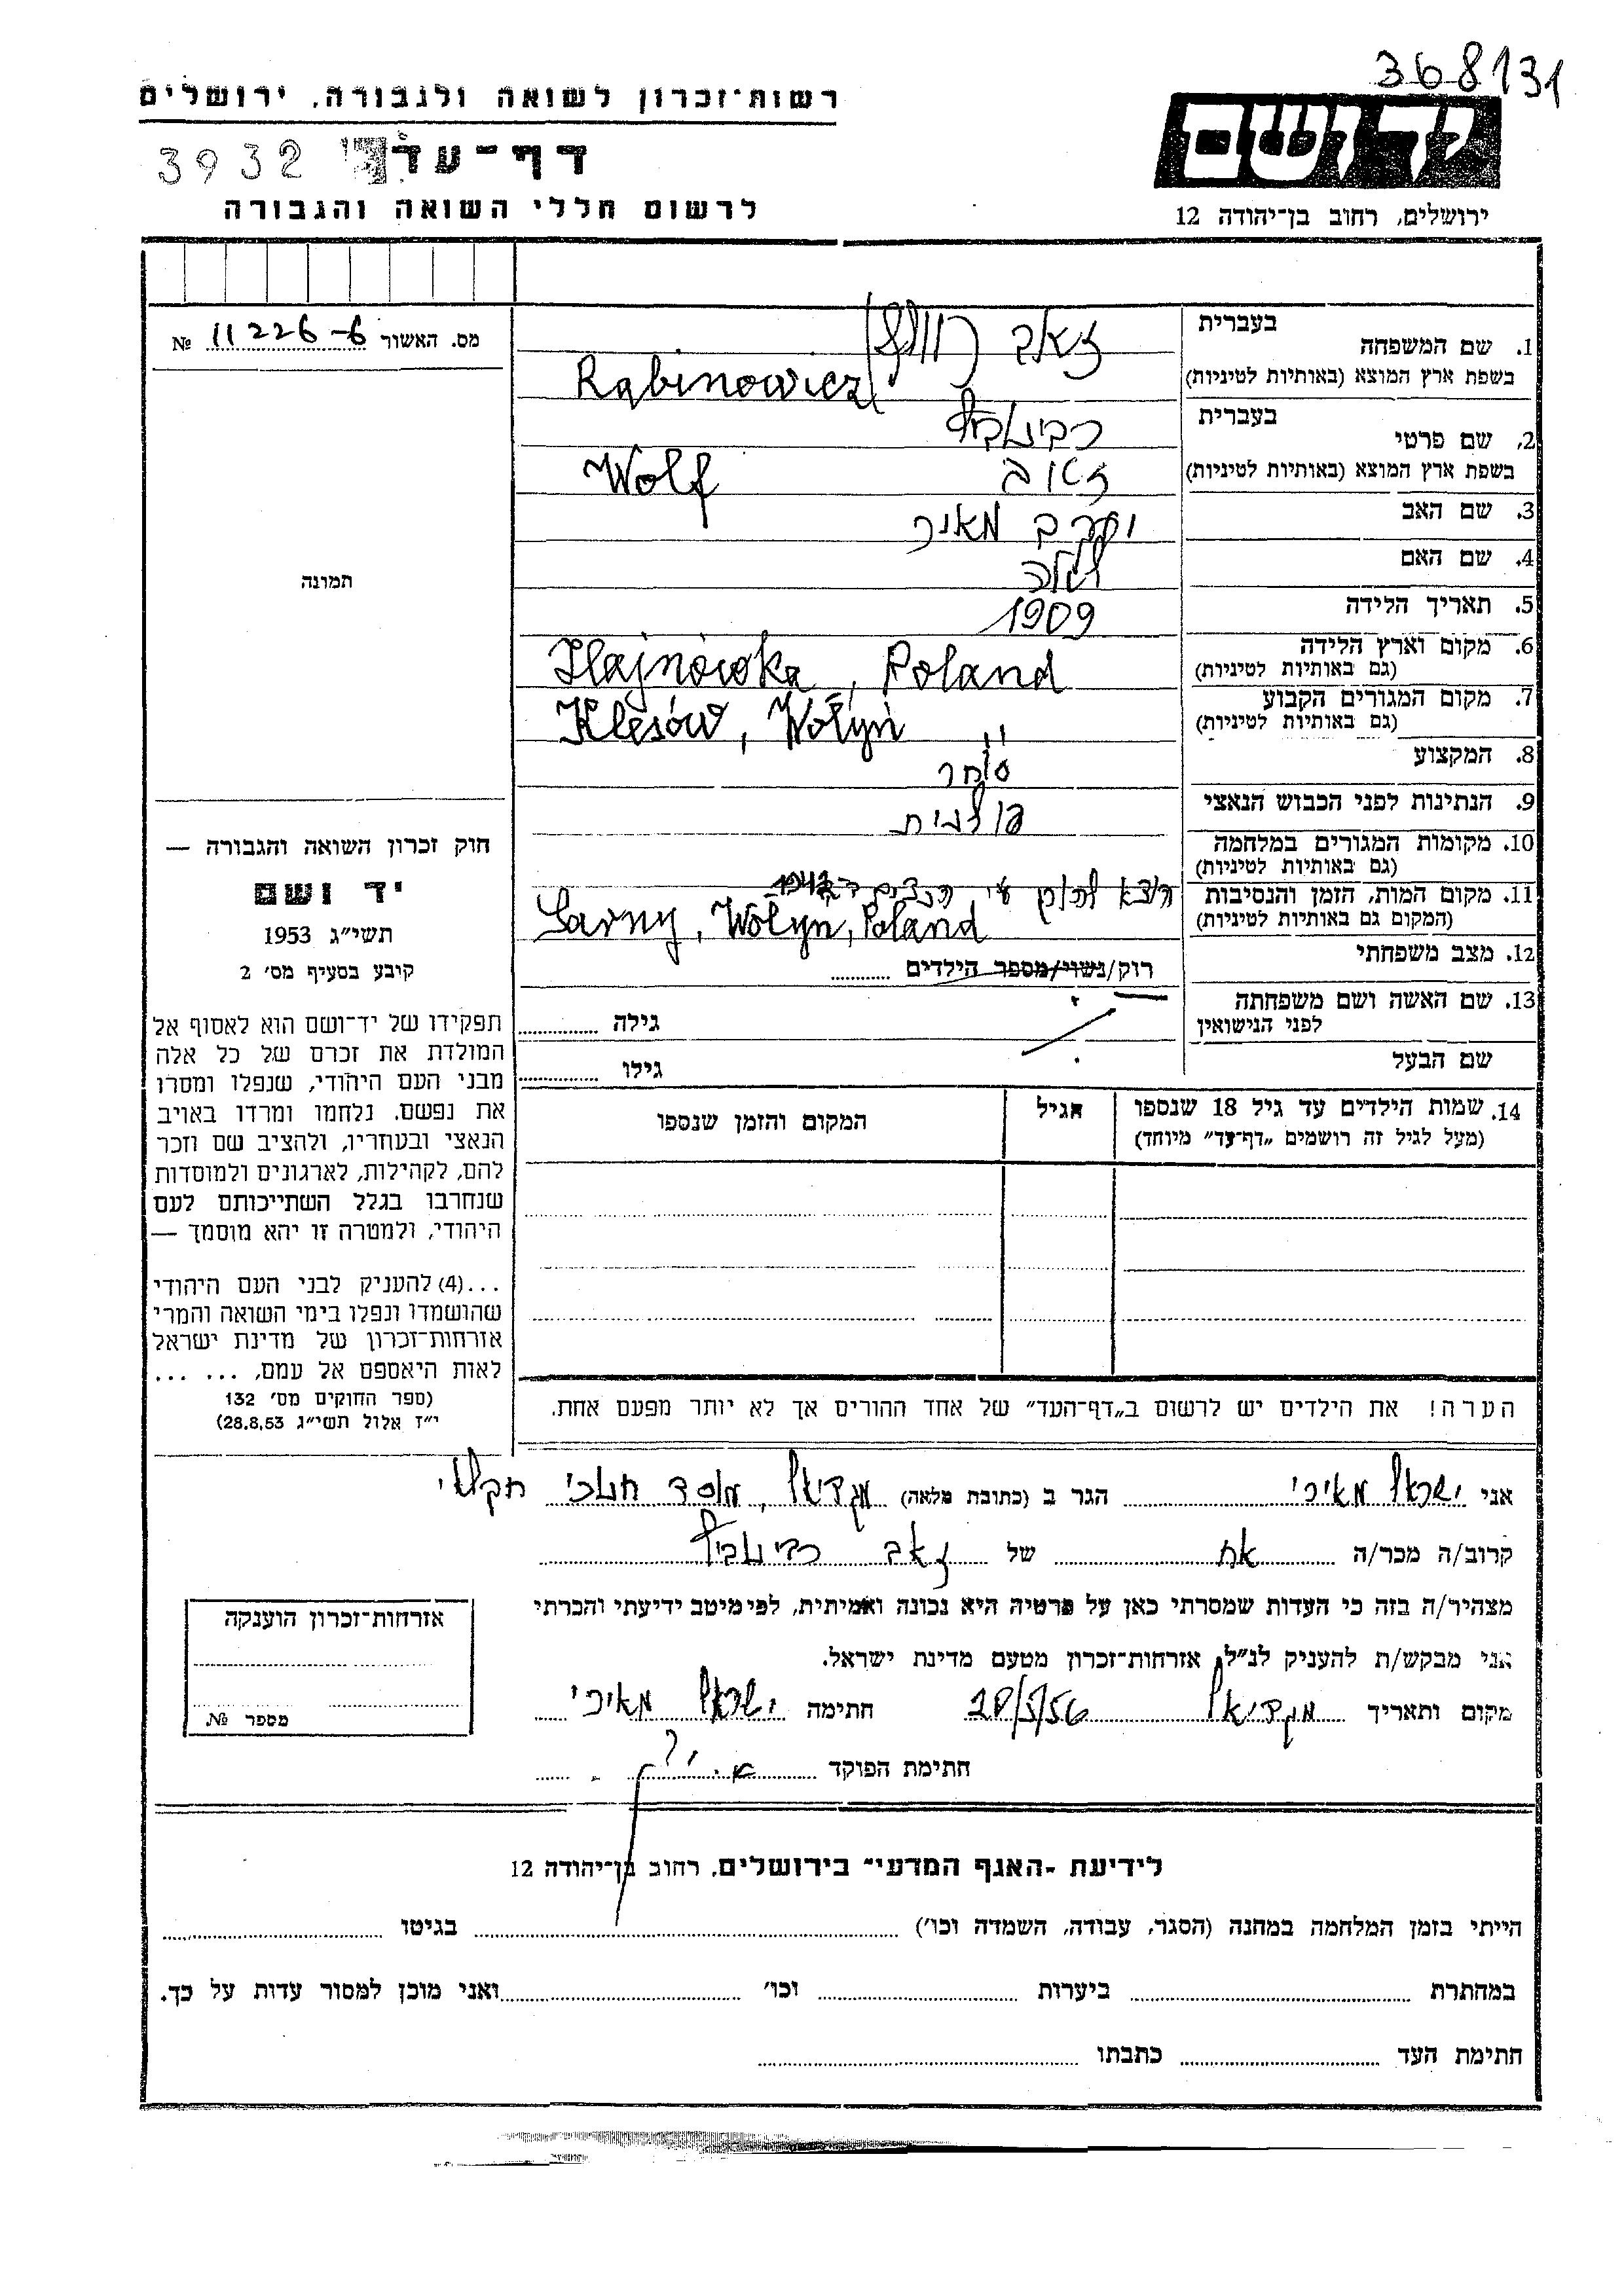 368131
רשות־זכרון לשואה ולגבורה, ירושלים
יד ושם
דף־עד
3932
לרשום חללי השואה והגבורה
ירושלים, רחוב בן־יהודה 12
מס. האשור 11226-6 №
תמונה
1. שם המשפחה
בעברית
זאב (וולף)
בשפת ארץ המוצא (באותיות לטיניות)
Rabinowicz
2. שם פרטי
בעברית
רבינוביץ
בשפת ארץ המוצא (באותיות לטיניות)
זאב Wolf
3. שם האב
יעקב מאיר
4. שם האם
5. תאריך הלידה
1909
6. מקום וארץ הלידה
(גם באותיות לטיניות)
Hajnówka, Poland
7. מקום המגורים הקבוע
(גם באותיות לטיניות)
Klesów, Wołyń
8. המקצוע
סוחר
9. הנתינות לפני הכבוש הנאצי
פולנית
10. מקומות המגורים במלחמה
(גם באותיות לטיניות)
11. מקום המות, הזמן והנסיבות
(המקום גם באותיות לטיניות)
הוצא להורג ע״י הנאצים
Sarny, Wołyn, Poland
12. מצב משפחתי
רוק/נשוי/מספר הילדים
13. שם האשה ושם משפחתה
לפני הנישואין
גילה
שם הבעל
גילו
14. שמות הילדים עד גיל 18 שנספו
(מעל לגיל זה רושמים „דף־עד” מיוחד)
הגיל
המקום והזמן שנספו
חוק זכרון השואה והגבורה —
יד ושם
תשי״ג 1953
קובע בסעיף מס׳ 2
תפקידו של יד־ושם הוא לאסוף אל
המולדת את זכרם של כל אלה
מבני העם היהודי, שנפלו ומסרו
את נפשם, נלחמו ומרדו באויב
הנאצי ובעוזריו, ולהציב שם וזכר
להם, לקהילות, לארגונים ולמוסדות
שנחרבו בגלל השתייכותם לעם
היהודי, ולמטרה זו יהא מוסמך —
...(4) להעניק לבני העם היהודי
שהושמדו ונפלו בימי השואה והמרי
אזרחות־זכרון של מדינת ישראל
לאות היאספם אל עמם, ... ...
(ספר החוקים מס׳ 132
י״ז אלול תשי״ג 28.8.53)
הערה! את הילדים יש לרשום ב„דף־העד” של אחד ההורים אך לא יותר מפעם אחת.
אני ישראל מאירי הגר ב (כתובת מלאה) מגדיאל, מוסד חנוכי חקלאי
קרוב/ה מכר/ה אח של זאב רבינוביץ
מצהיר/ה בזה כי העדות שמסרתי כאן על פרטיה היא נכונה ואמיתית, לפי מיטב ידיעתי והכרתי
אני מבקש/ת להעניק לנ״ל אזרחות־זכרון מטעם מדינת ישראל.
מקום ותאריך מגדיאל 28/5/56 חתימה ישראל מאירי
חתימת הפוקד
אזרחות־זכרון הוענקה
מספר №
לידיעת „האגף המדעי” בירושלים, רחוב בן־יהודה 12
הייתי בזמן המלחמה במחנה (הסגר, עבודה, השמדה וכו׳) בגיטו
במחתרת ביערות וכו׳ ואני מוכן למסור עדות על כך.
חתימת העד כתבתו